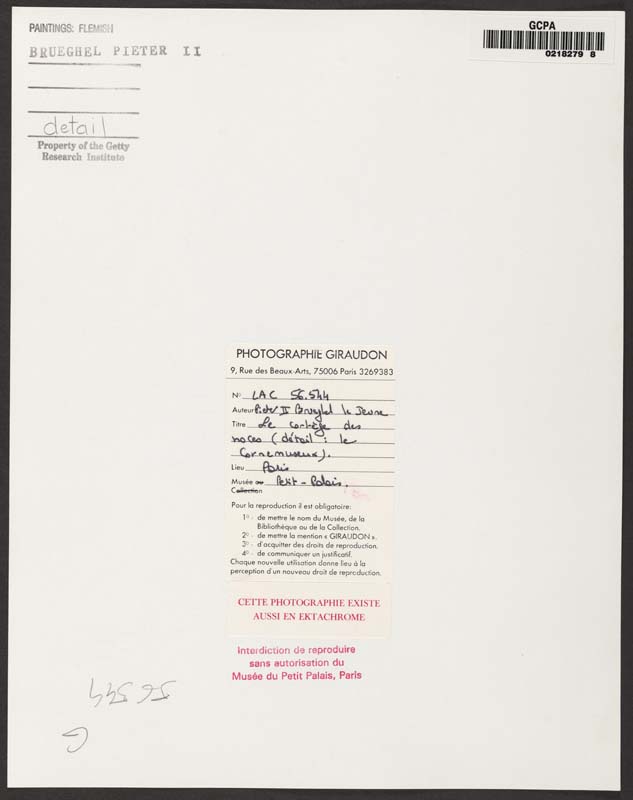 PAINTINGS: FLEMISH
BRUEGHEL PIETER II
detail
Property of the Getty
Research Institute
GCPA
0218279 8
PHOTOGRAPHIE GIRAUDON
9, Rue des Beaux-Arts, 75006 Paris 3269383
No LAC 56.544
Auteur Pieter II Brueghel le Jeune
Titre Le cortège des
noces (détail : le
Cornemuseux).
Lieu Paris
Musée ou Petit-Palais.
Collection
Pour la reproduction il est obligatoire:
1o - de mettre le nom du Musée, de la
Bibliothèque ou de la Collection.
2o - de mettre la mention « GIRAUDON ».
3o - d'acquitter des droits de reproduction.
4o - de communiquer un justificatif.
Chaque nouvelle utilisation donne lieu à la
perception d'un nouveau droit de reproduction.
CETTE PHOTOGRAPHIE EXISTE
AUSSI EN EKTACHROME
Interdiction de reproduire
sans autorisation du
Musée du Petit Palais, Paris
56 544
G